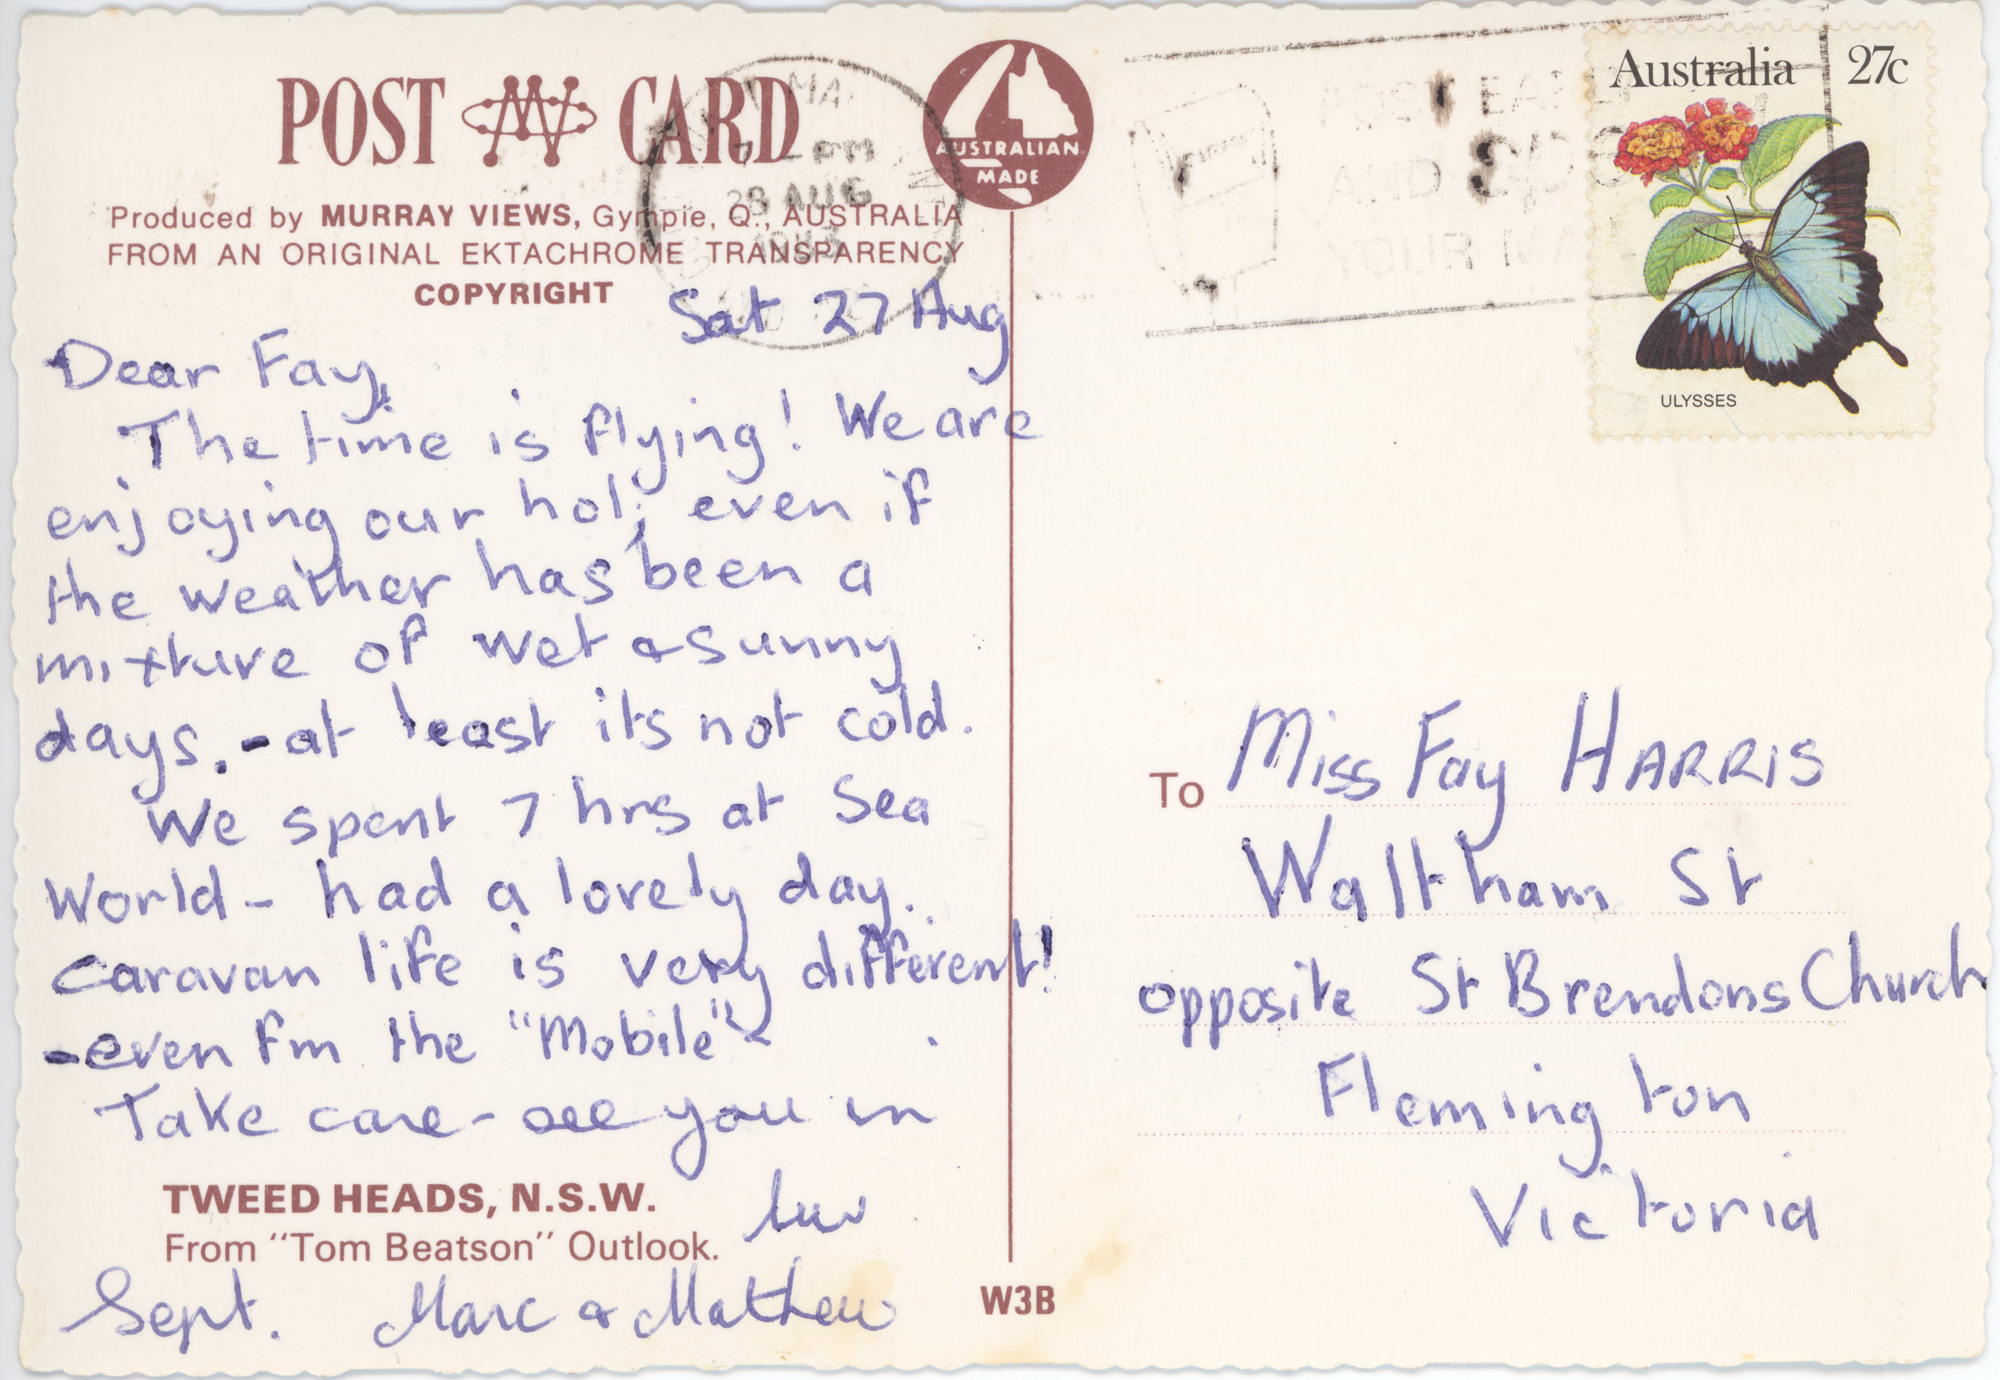 POST CARD
Produced by MURRAY VIEWS, Gympie, Q., AUSTRALIA
FROM AN ORIGINAL EKTACHROME TRANSPARENCY
COPYRIGHT
AUSTRALIAN
MADE
PM
28 AUG
POST EARLY
AND
YOUR MAIL
Australia 27c
ULYSSES
Sat 27 Aug
Dear Fay,
The time is flying! We are
enjoying our hol. even if
the weather has been a
mixture of wet & sunny
days. - at least its not cold.
We spent 7 hrs at Sea
World - had a lovely day.
Caravan life is very different!
- even fm the "Mobile"
Take care - see you in
Sept.
luv
Marc & Mathew
TWEED HEADS, N.S.W.
From "Tom Beatson" Outlook.
W3B
To Miss Fay HARRIS
Waltham St
opposite St Brendons Church
Flemington
Victoria